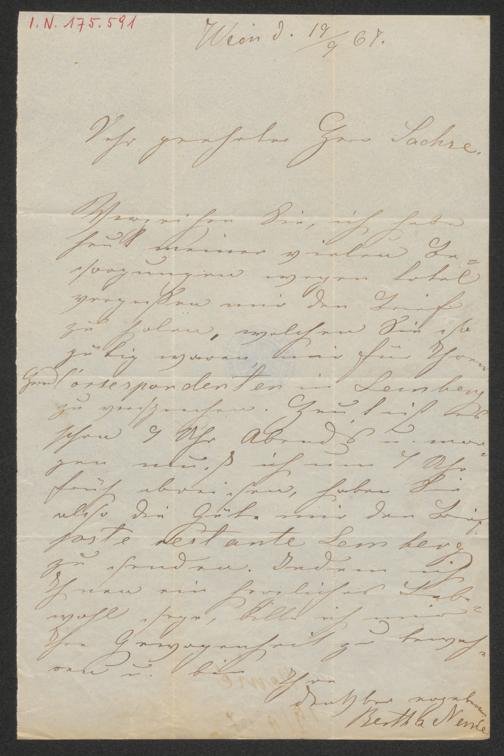 I.N. 175.591
Wien d. 19/9 67.
Sehr geehrter Herr Sachse.
Verzeihen Sie, ich habe
heut meiner vielen Be=
sorgungen wegen total
vergessen mir den Brief
zu holen, welchen Sie so
gütig waren, mir für Ihren
Herrn Correspondenten in Lemberg
zu versprechen. Heut ist es
schon 7 Uhr Abends u. mor=
gen muß ich um 7 Uhr
früh abreisen, haben Sie
also die Güte mir den Brief
poste restante Lemberg
zu senden. Indem ich
Ihnen ein herzliches Lebe=
wohl sage, bitte ich mir
Ihre Gewogenheit zu bewah=
ren u. bin Ihre
dankbar ergebene
Bertha